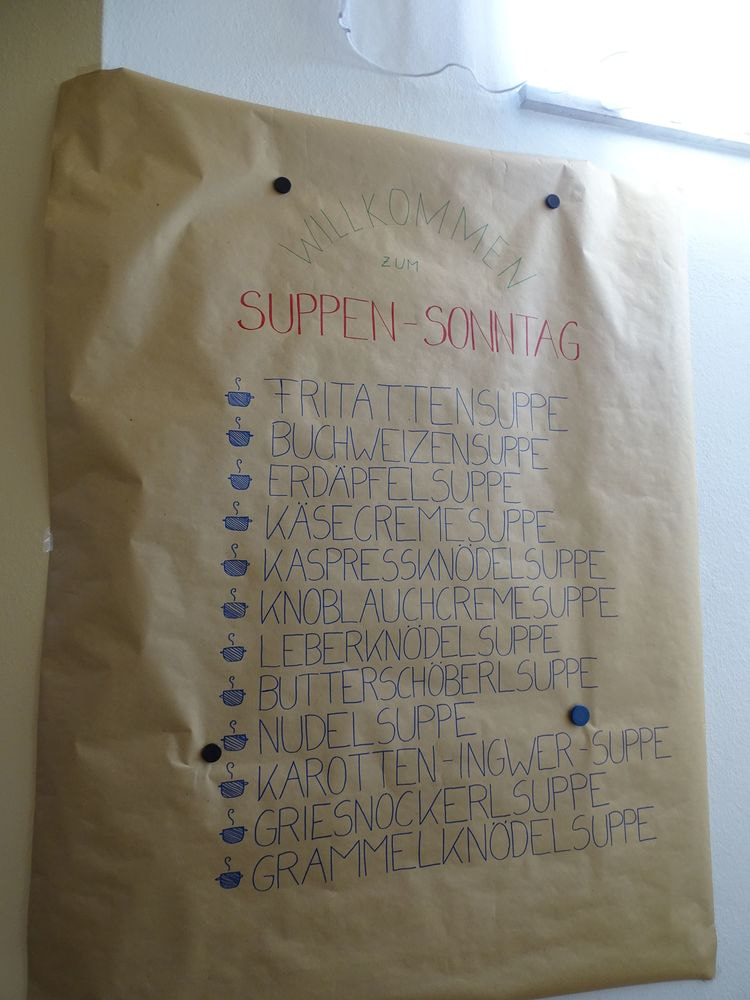 WILLKOMMEN
ZUM
SUPPEN-SONNTAG
FRITATTENSUPPE
BUCHWEIZENSUPPE
ERDÄPFELSUPPE
KÄSECREMESUPPE
KASPRESSKNÖDELSUPPE
KNOBLAUCHCREMESUPPE
LEBERKNÖDELSUPPE
BUTTERSCHÖBERLSUPPE
NUDELSUPPE
KAROTTEN-INGWER-SUPPE
GRIESNOCKERLSUPPE
GRAMMELKNÖDELSUPPE